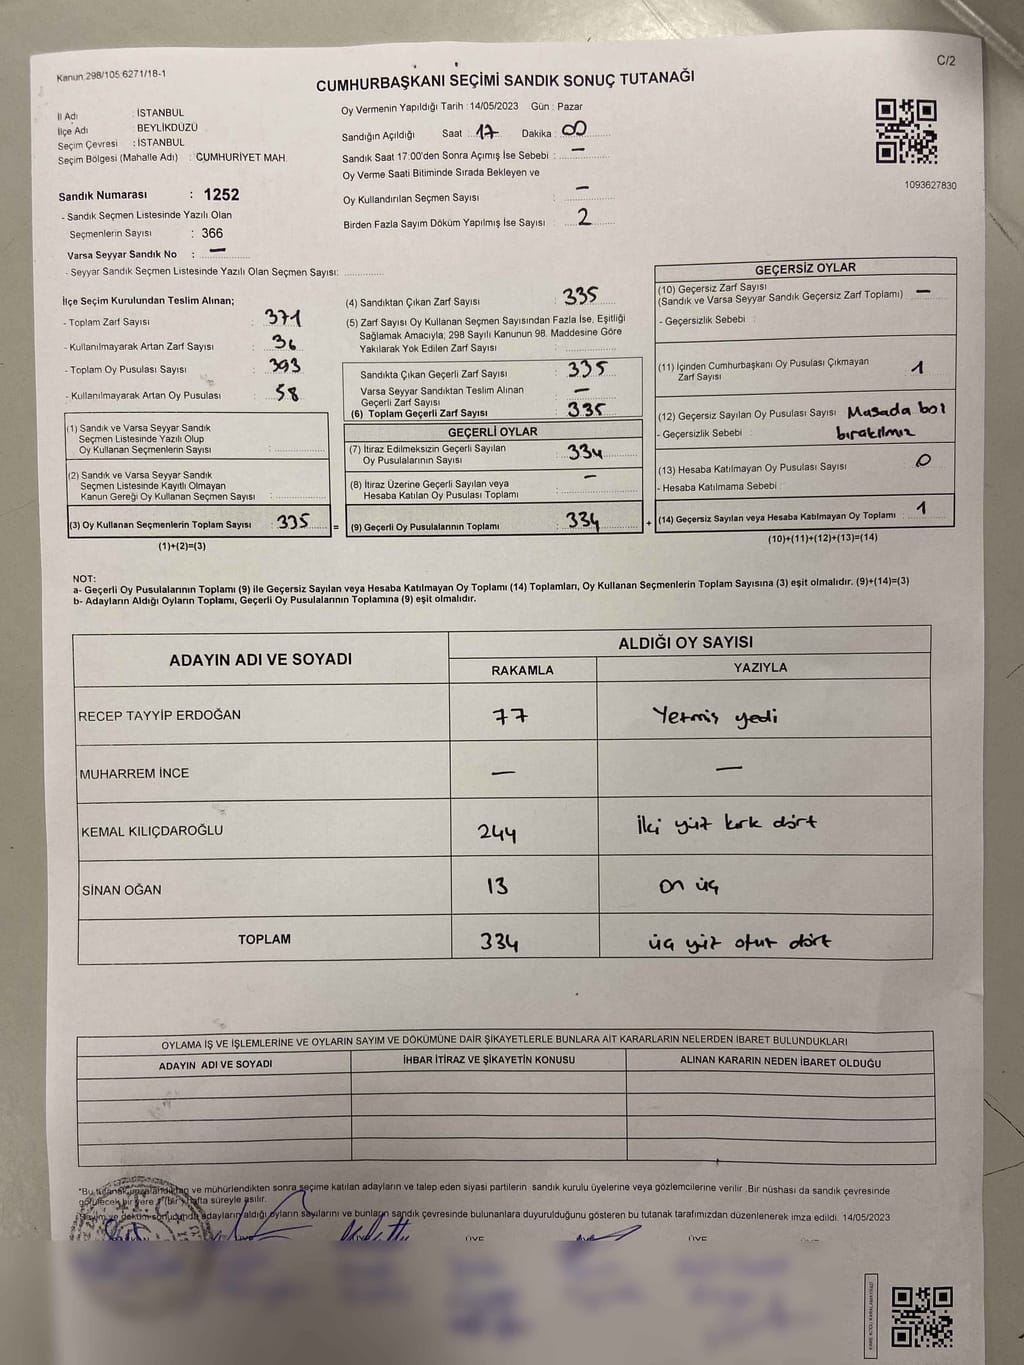 Kanun:298/105:6271/18-1
C/2
CUMHURBAŞKANI SEÇİMİ SANDIK SONUÇ TUTANAĞI
İl Adı : İSTANBUL
İlçe Adı : BEYLİKDÜZÜ
Seçim Çevresi : İSTANBUL
Seçim Bölgesi (Mahalle Adı) : CUMHURİYET MAH.
Sandık Numarası : 1252
- Sandık Seçmen Listesinde Yazılı Olan
Seçmenlerin Sayısı : 366
Varsa Seyyar Sandık No : —
- Seyyar Sandık Seçmen Listesinde Yazılı Olan Seçmen Sayısı:
Oy Vermenin Yapıldığı Tarih : 14/05/2023 Gün : Pazar
Sandığın Açıldığı Saat : 17 Dakika : 00
Sandık Saat 17:00'den Sonra Açımış İse Sebebi : —
Oy Verme Saati Bitiminde Sırada Bekleyen ve
Oy Kullandırılan Seçmen Sayısı : —
Birden Fazla Sayım Döküm Yapılmış İse Sayısı : 2
1093627830
İlçe Seçim Kurulundan Teslim Alınan;
- Toplam Zarf Sayısı : 371
- Kullanılmayarak Artan Zarf Sayısı : 36
- Toplam Oy Pusulası Sayısı : 393
- Kullanılmayarak Artan Oy Pusulası : 58
(1) Sandık ve Varsa Seyyar Sandık
Seçmen Listesinde Yazılı Olup
Oy Kullanan Seçmenlerin Sayısı :
(2) Sandık ve Varsa Seyyar Sandık
Seçmen Listesinde Kayıtlı Olmayan
Kanun Gereği Oy Kullanan Seçmen Sayısı :
(3) Oy Kullanan Seçmenlerin Toplam Sayısı : 335 =
(1)+(2)=(3)
(4) Sandıktan Çıkan Zarf Sayısı : 335
(5) Zarf Sayısı Oy Kullanan Seçmen Sayısından Fazla İse, Eşitliği
Sağlamak Amacıyla; 298 Sayılı Kanunun 98. Maddesine Göre
Yakılarak Yok Edilen Zarf Sayısı :
Sandıkta Çıkan Geçerli Zarf Sayısı : 335
Varsa Seyyar Sandıktan Teslim Alınan
Geçerli Zarf Sayısı : —
(6) Toplam Geçerli Zarf Sayısı : 335
GEÇERLİ OYLAR
(7) İtiraz Edilmeksizin Geçerli Sayılan
Oy Pusulalarının Sayısı : 334
(8) İtiraz Üzerine Geçerli Sayılan veya
Hesaba Katılan Oy Pusulası Toplamı : —
(9) Geçerli Oy Pusulalarının Toplamı : 334 +
GEÇERSİZ OYLAR
(10) Geçersiz Zarf Sayısı
(Sandık ve Varsa Seyyar Sandık Geçersiz Zarf Toplamı) : —
- Geçersizlik Sebebi :
(11) İçinden Cumhurbaşkanı Oy Pusulası Çıkmayan
Zarf Sayısı : 1
(12) Geçersiz Sayılan Oy Pusulası Sayısı Masada boş
- Geçersizlik Sebebi : bırakılmız
(13) Hesaba Katılmayan Oy Pusulası Sayısı : 0
- Hesaba Katılmama Sebebi :
(14) Geçersiz Sayılan veya Hesaba Katılmayan Oy Toplamı : 1
(10)+(11)+(12)+(13)=(14)
NOT:
a- Geçerli Oy Pusulalarının Toplamı (9) ile Geçersiz Sayılan veya Hesaba Katılmayan Oy Toplamı (14) Toplamları, Oy Kullanan Seçmenlerin Toplam Sayısına (3) eşit olmalıdır. (9)+(14)=(3)
b- Adayların Aldığı Oyların Toplamı, Geçerli Oy Pusulalarının Toplamına (9) eşit olmalıdır.
ADAYIN ADI VE SOYADI
ALDIĞI OY SAYISI
RAKAMLA YAZIYLA
RECEP TAYYİP ERDOĞAN 77 Yetmiş yedi
MUHARREM İNCE — —
KEMAL KILIÇDAROĞLU 244 İki yüz kırk dört
SİNAN OĞAN 13 on üç
TOPLAM 334 üç yüz otuz dört
OYLAMA İŞ VE İŞLEMLERİNE VE OYLARIN SAYIM VE DÖKÜMÜNE DAİR ŞİKAYETLERLE BUNLARA AİT KARARLARIN NELERDEN İBARET BULUNDUKLARI
ADAYIN ADI VE SOYADI İHBAR İTİRAZ VE ŞİKAYETİN KONUSU ALINAN KARARIN NEDEN İBARET OLDUĞU
*Bu tutanak imzalandıktan ve mühürlendikten sonra seçime katılan adayların ve talep eden siyasi partilerin sandık kurulu üyelerine veya gözlemcilerine verilir .Bir nüshası da sandık çevresinde
görülecek bir yere 1 (bir) hafta süreyle asılır.
Sayım ve döküm sonucunda adayların aldığı oyların sayılarını ve bunların sandık çevresinde bulunanlara duyurulduğunu gösteren bu tutanak tarafımızdan düzenlenerek imza edildi. 14/05/2023
ÜYE ÜYE